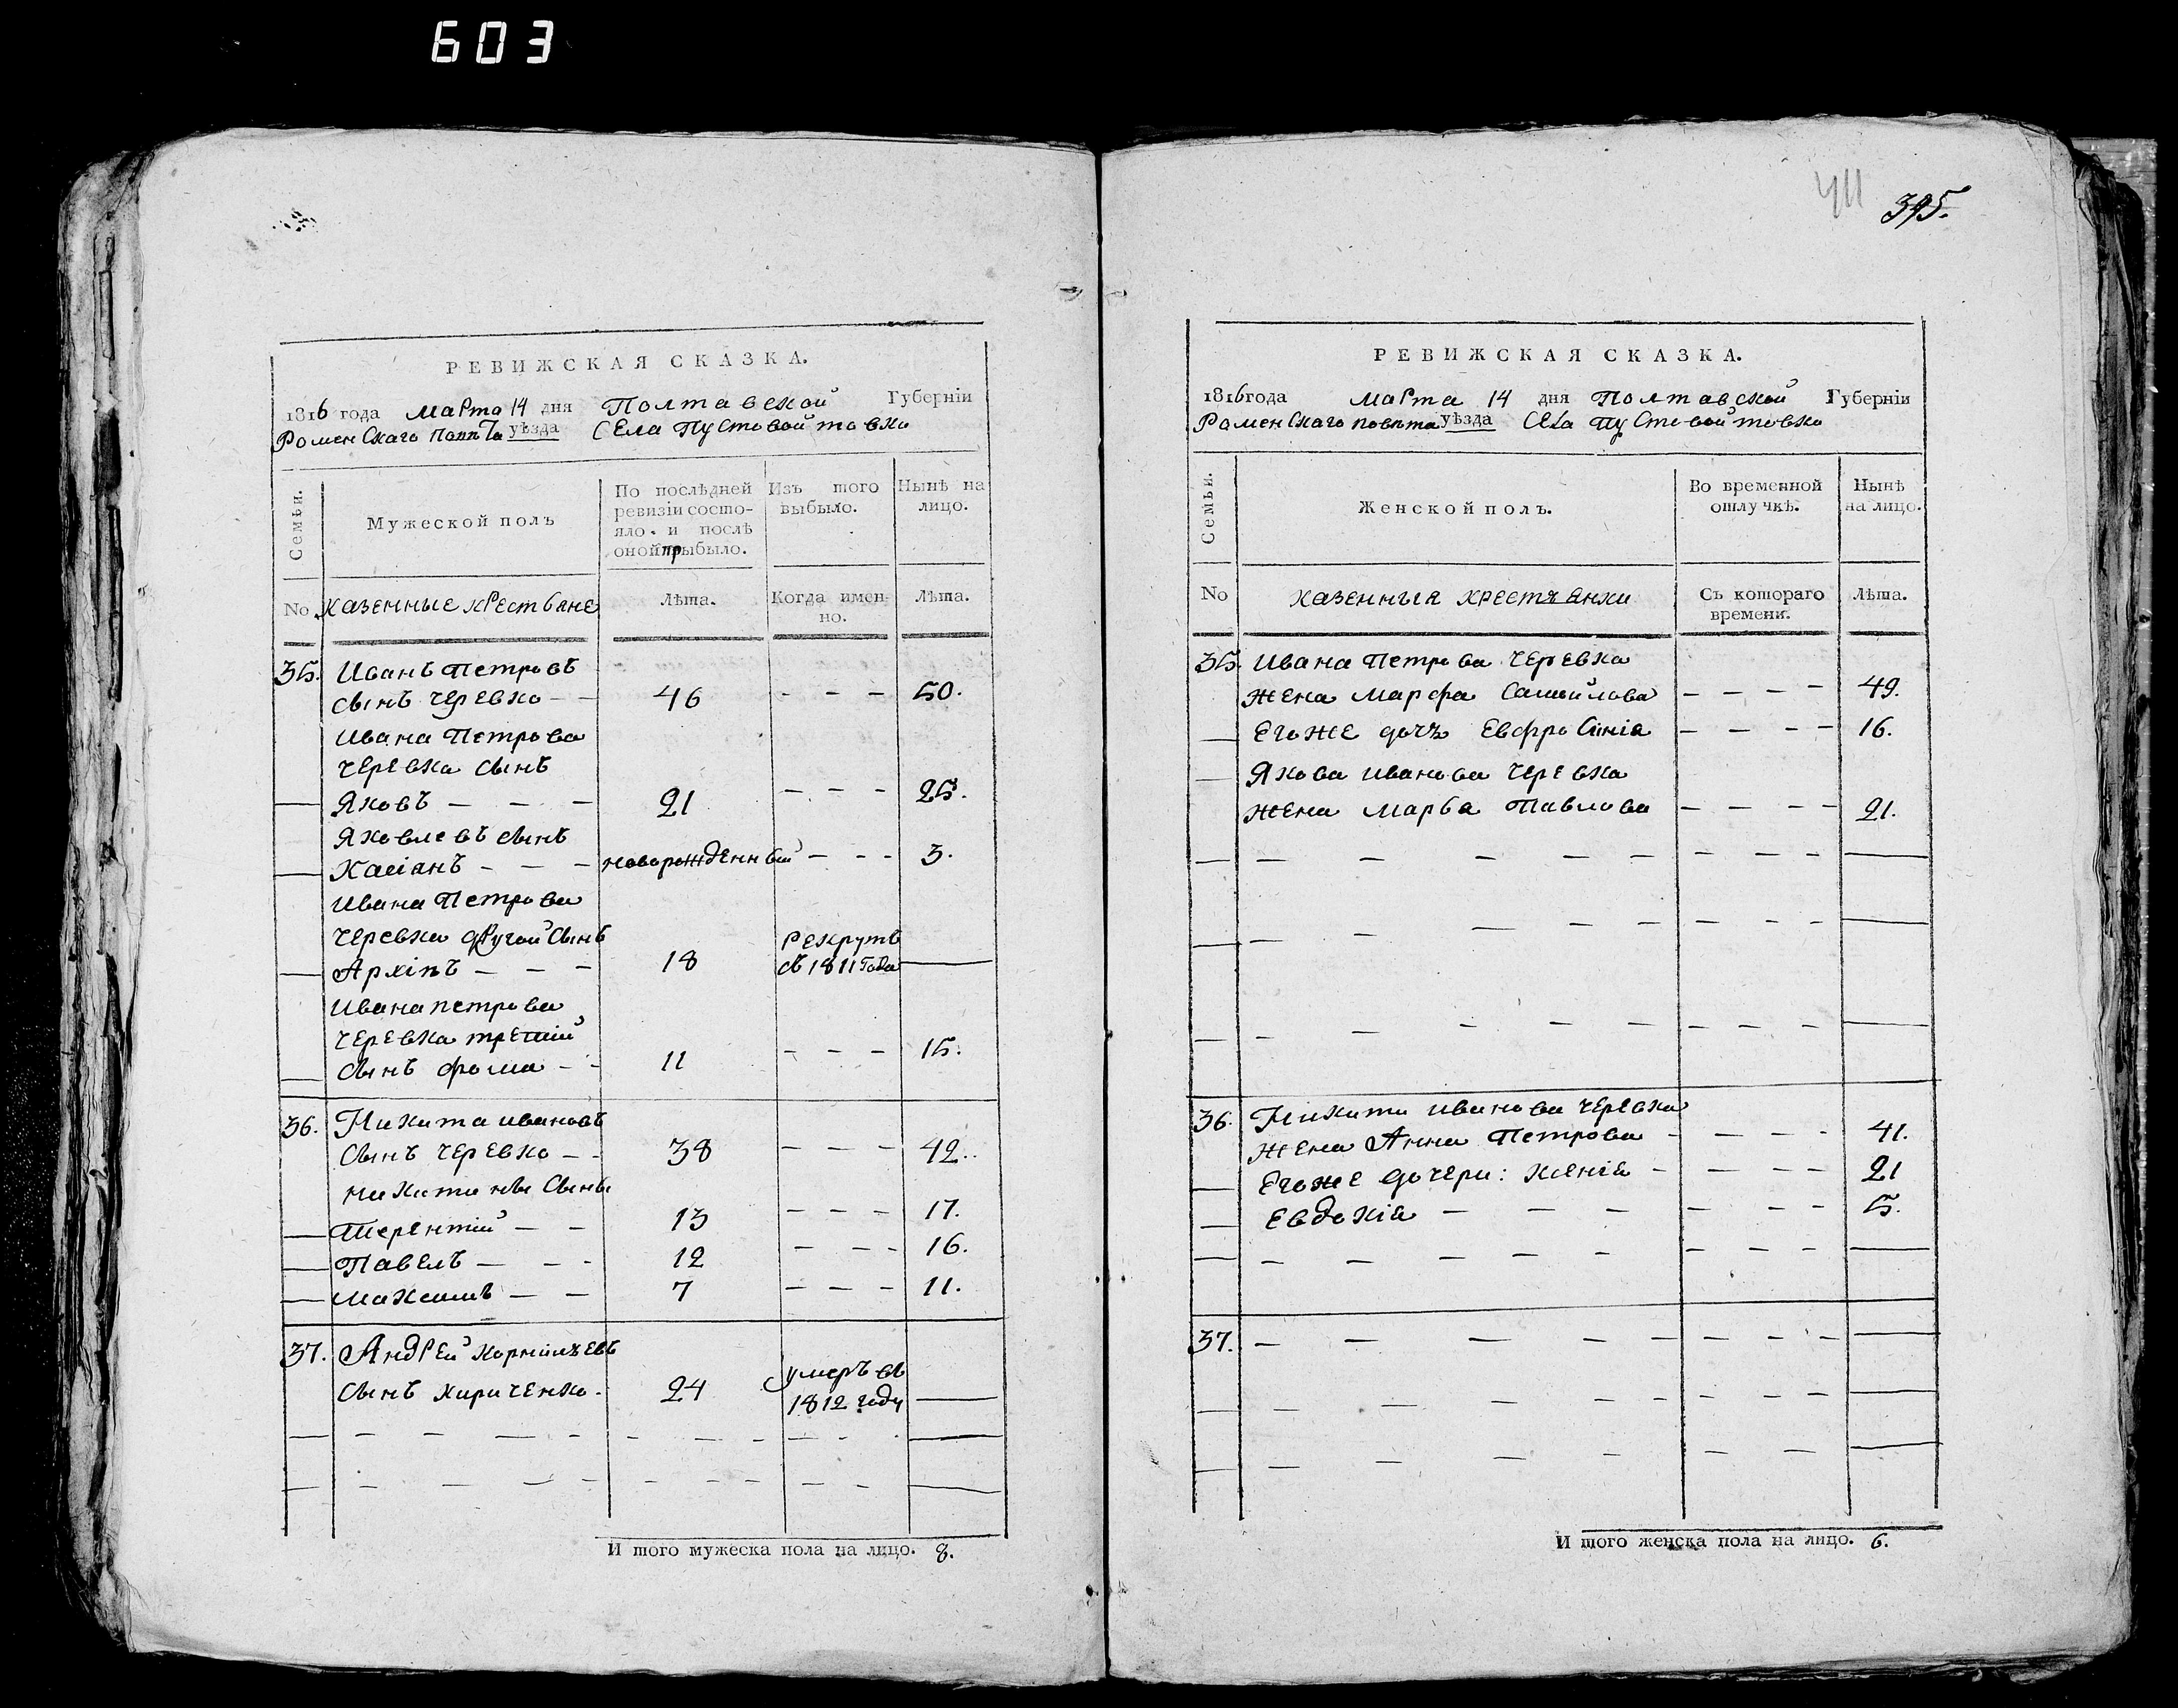 603
РЕВИЖСКАЯ СКАЗКА.
1816 года марта 14 дня Полтавской Губерніи
Роменскаго уѣзда Села Пустовойтовки
Семьи.
Мужеской полъ
По послѣдней ревизіи состояло и послѣ оной прыбыло.
Изъ того выбыло.
Нынѣ на лицо.
No
казенные крестьяне
Лѣта.
Когда именно.
Лѣта.
35. Иванъ Петровъ
сынъ Черевко - - 46 - - - 50.
Ивана Петрова
Черевка сынъ
Яковъ - - - 21 - - - 25.
Яковлевъ сынъ
Касіанъ - - - новорожденный - - - 3.
Ивана Петрова
Черевка другой сынъ рекрутъ
Архіпъ - - - 18 съ 1811 года
Ивана Петрова
Черевка третій
сынъ Фома - - 11 - - - 15.
36. Никита Ивановъ
сынъ Черевко - - 38 - - - 42.
Никитины сыны
Терентій - - 13 - - - 17.
Павелъ - - - 12 - - - 16.
Максимъ - - 7 - - - 11.
37. Андрей Корнілъевъ
сынъ Кириченко - 24 умеръ въ 1812 году
И того мужеска пола на лицо. 8.
411 395.
РЕВИЖСКАЯ СКАЗКА.
1816 года марта 14 дня Полтавской Губерніи
Роменскаго повѣта уѣзда Села Пустовойтовки
Семьи.
Женской полъ.
Во временной отлучкѣ.
Нынѣ на лицо.
No
казенныя крестъянки
Съ котораго времени.
Лѣта.
35. Ивана Петрова Черевка
жена Марфа Самойлова - - - - 49.
Его же дочъ Евфросинія - - - - 16.
Якова Иванова Черевка
жена Марья Павлова - - - - 21.
36. Никиты Иванова Черевка
жена Анна Петрова - - - - 41.
Его же дочери: Ксенія - - - - 21
Евдокія - - - - - - 5.
37.
И того женска пола на лицо. 6.